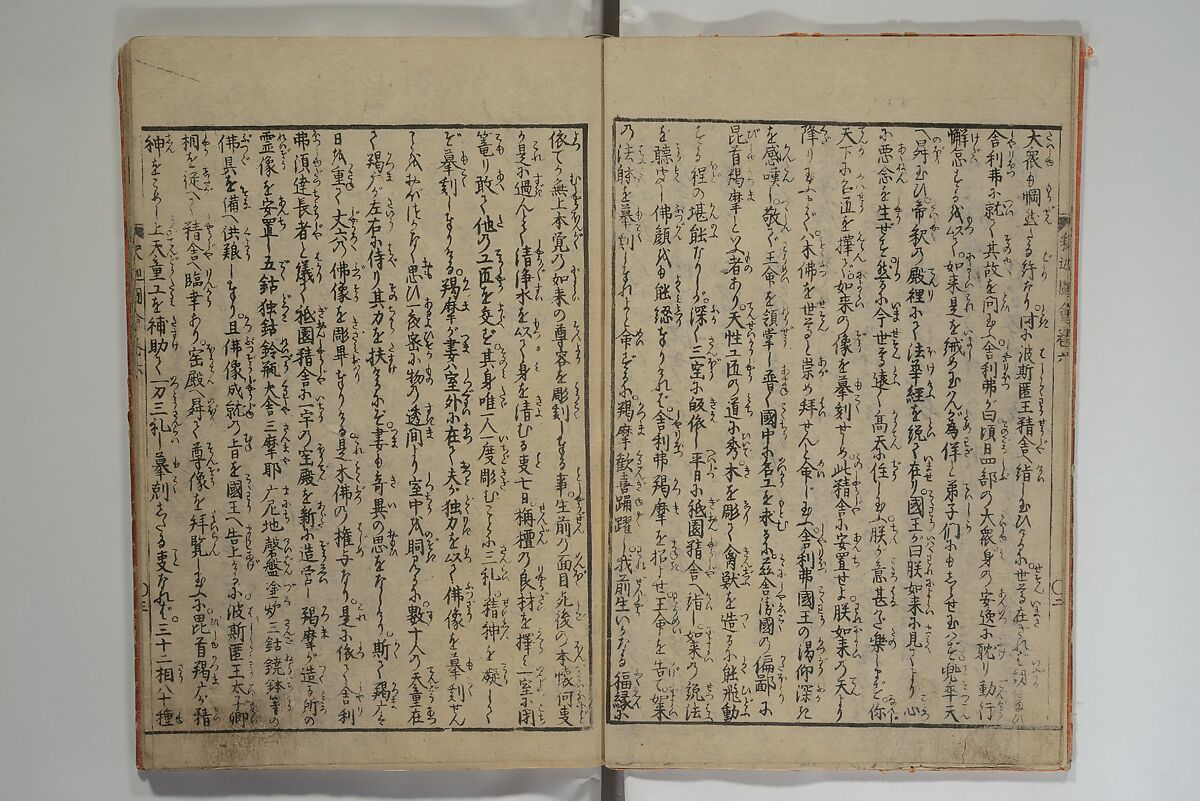 大衆も惘然たる計なり時に波斯匿王精舎へ詣し玉ひけるに世尊在されば
舎利弗に就て其故を問玉へば舎利弗が曰頃日四部の大衆身の安逸に耽り動行
懈怠せるを以て如来是を械め玉はん為佯て弟子們にもしらせ玉はず兜率天
へ昇玉ひ帝釈の殿裡にて法華経を説て在り国王が曰朕如来に見てより心
に悪念を生ぜず然るに今世を遠く高天に住し玉へば朕が意甚だ楽しまず你
天下に名匠を擇び如来の像を摹刻せしめ此精舎に安置せよ朕如来の天より
降り玉ふまで木佛を世尊と崇め拜せんと命じ玉へば舎利弗國王の渇仰深き
を感嘆し敬で王命を領掌し普く國中に名工を求るに茲舎衛國の偏鄙に
毘首羯摩と云者あり天性工匠の道に秀木を彫て禽獣を造るに能飛動
する程の堪能なりし深く三宝に皈依し平日に祇園精舎へ詣し如来の説法
を聽聞し佛顔をも能認なりければ舎利弗羯摩を招し世王命を告て如来
の法躰を摹刻しまゐらせよと命ずるに羯摩歓喜踊躍し我前生いかなる福縁に
依てか無上本覚の如来の尊容を彫刻しまゐらする事生前の面目死後の本懐何事
か是に過んとて清浄水を以て身を清むる事七日栴檀の良材を擇て一室に閉
篭り敢て他の工匠を交へず其身唯一人一度彫むごとに三礼し精神を凝して
ぞ摹刻しまゐらする羯摩が妻八室外に在て夫が独力を以て佛像を摹刻せん
ことをおぼつかなく思ひ一夜密に物の透間より室中を覗見るに数十人の天童在
て羯广が左右に侍り其力を扶けるにぞ妻も奇異の思をなしけり斯て羯广は
日を重て丈六の佛像を彫畢まゐらする是木佛の権与なり是に依て舎利
弗須達長者と議て祇園精舎に一宇の宝殿を新に造営し羯摩が造る所の
霊像を安置し五鈷独鈷鈴瓶大舎三摩耶广尼地磬盤金炉三鈷鐃鉢等の
佛具を備へ供養しまゐらせ且佛像成就の旨を國王へ告上るに波斯匿王太子卿
相を従へて精舎に臨幸あり宝殿に昇て尊像を拜覧し玉ふに毘首羯广が精
神をこめし上天童工を補助て一刀三礼し摹刻まゐらする事なれば三十二相八十種